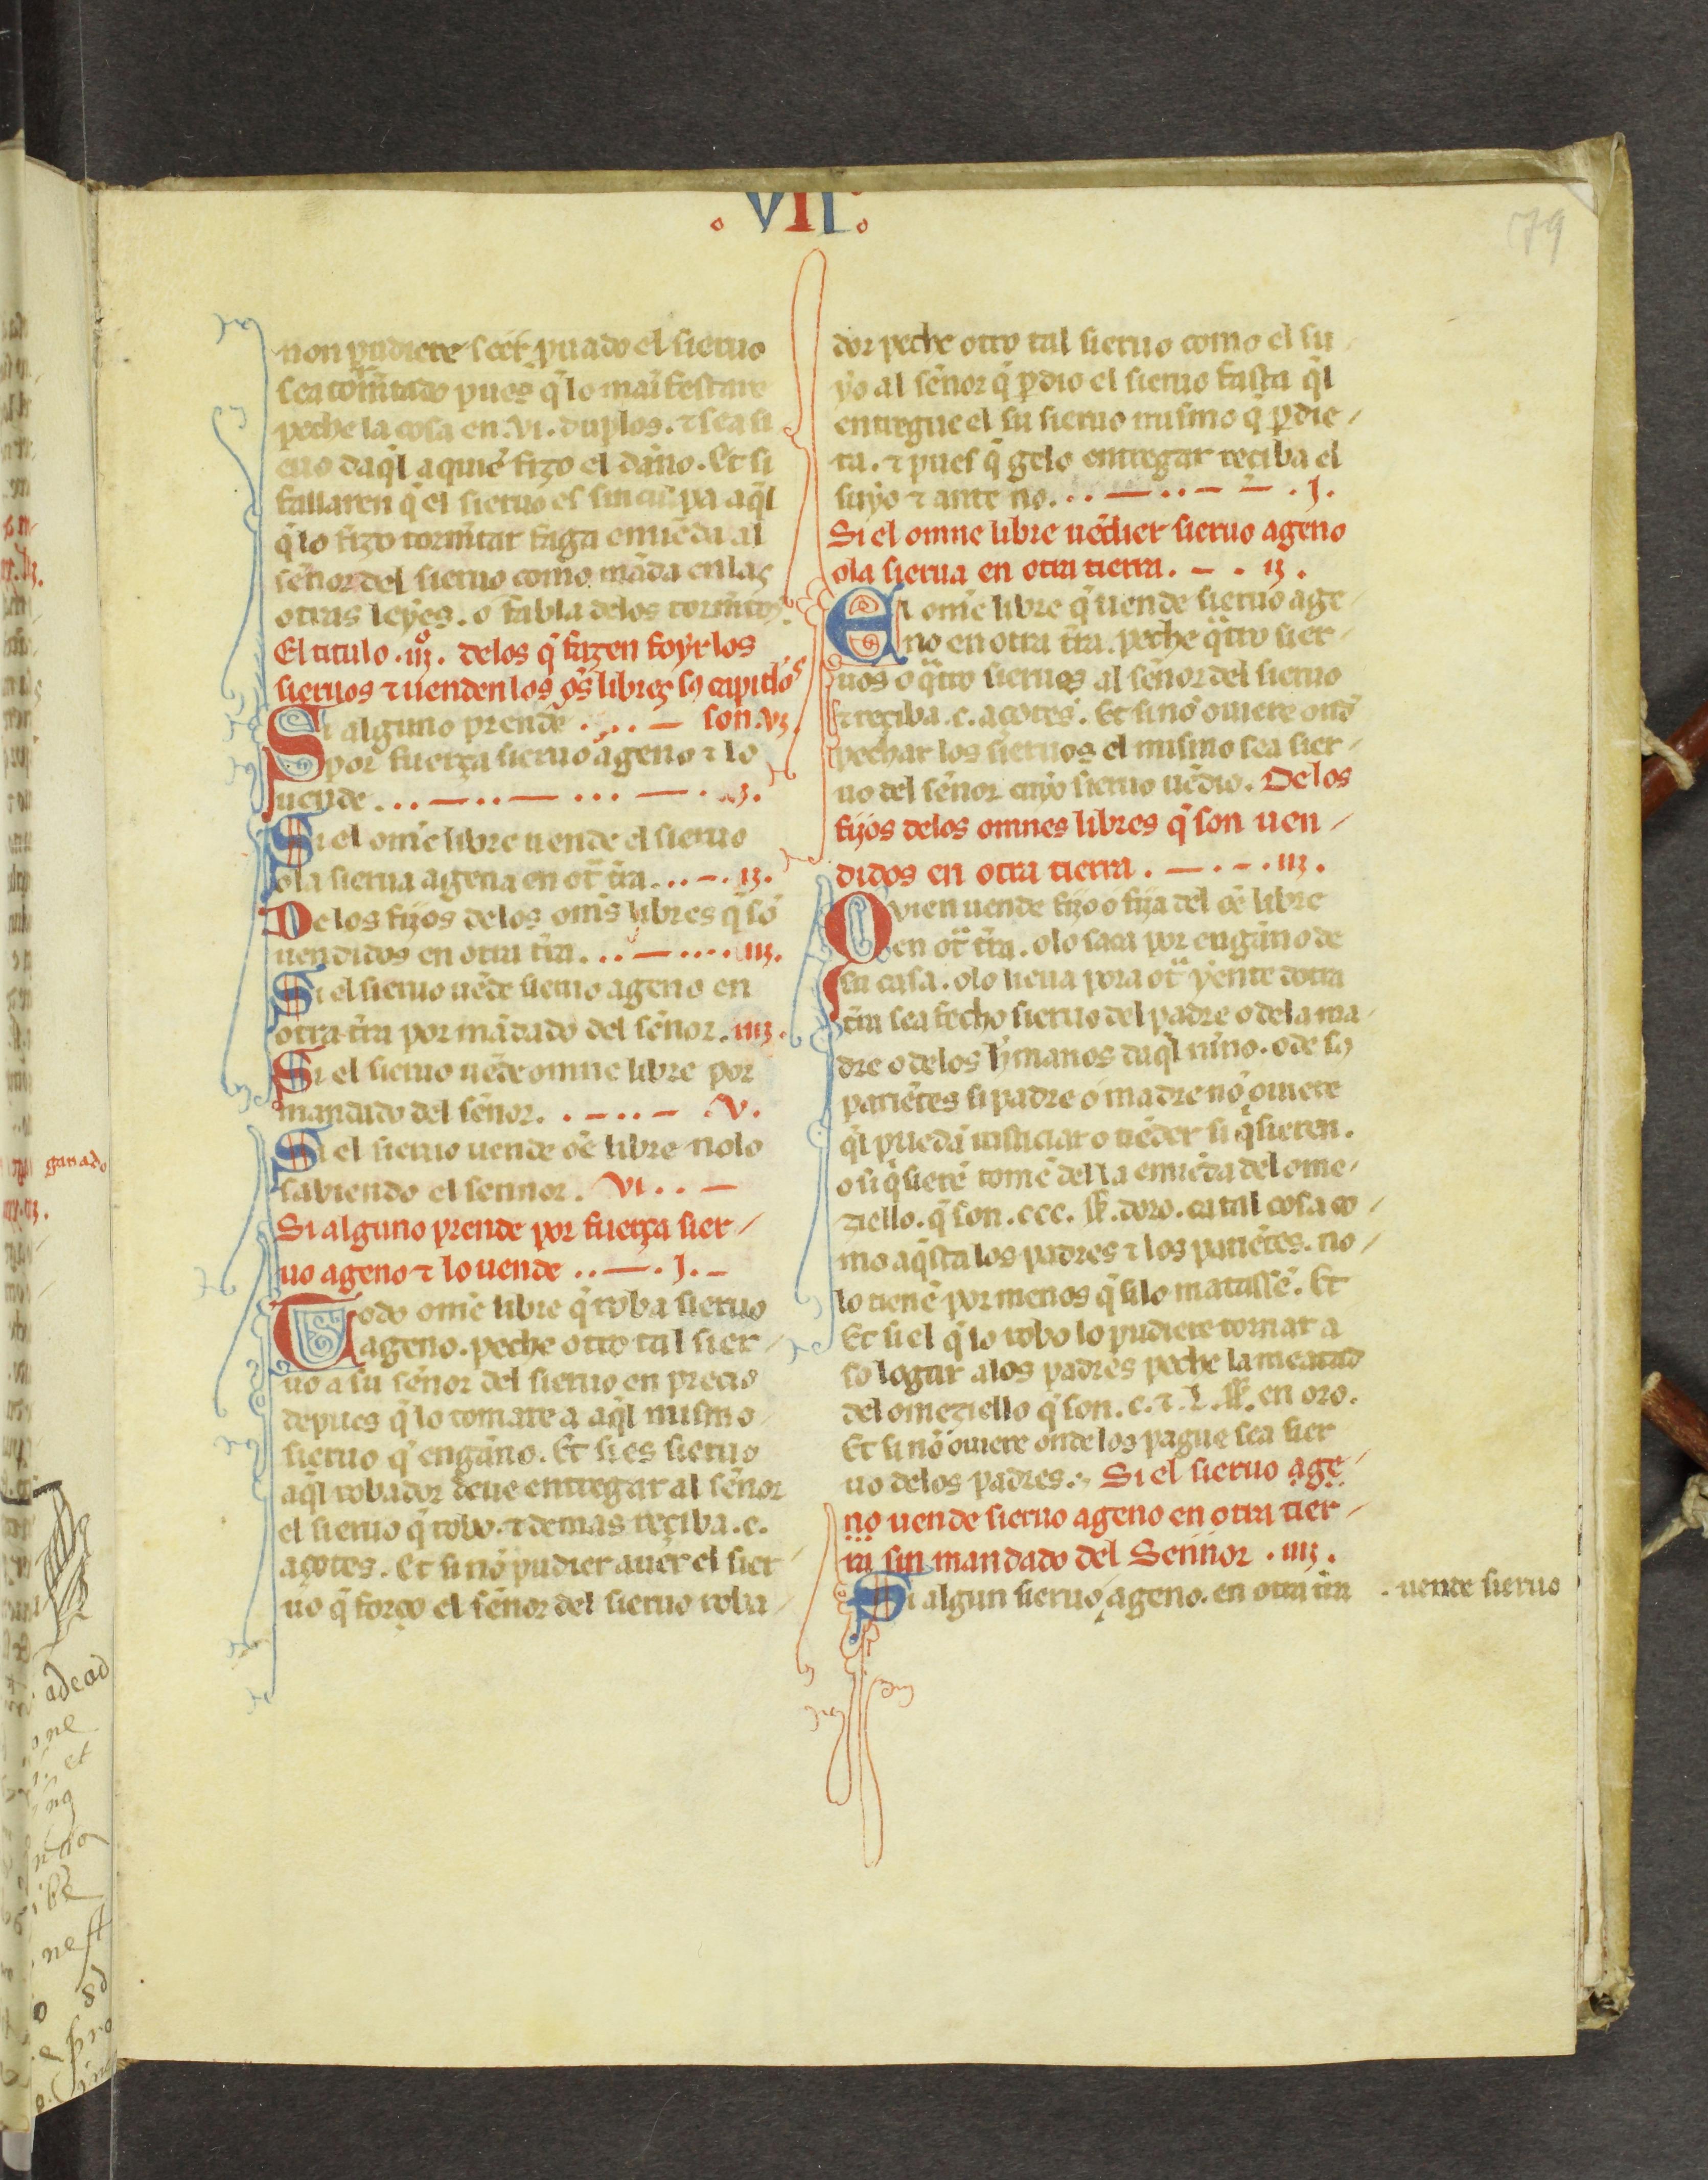 .VII.
79
non pudiere seer puado el sieruo
sea tom̃tado pues q̃ lo maĩfestare
peche la cosa en .vi. duplos. ⁊ sea si
euo daq̃l a quiẽ fizo el dan̄o. Et si
fallaren q̃ el sieruo es sin culpa aq̃l
q̃ lo fizo torm̃tar faga emiẽda al
sen̄or del sieruo como mãda en las
otras leyes. o fabla delos torm̃tos.
El titulo .iijº. delos q̃ fazen foyr los
sieruos ⁊ uenden los õs libres ⁊ sꝯ capitłos
Si alguno prende . . . — son .vj.
por fuerça sieruo ageno ⁊ lo
uende . . . — . . — . . . — . j.
Si el om̃e libre uende el sieruo
ola sierua agena en ot̃ t̃ra . . . — . ij.
De los fijos delos om̃s libres q̃ sõ
uendidos en otra t̃ra . . . — . . . . iij.
Si el sieruo uẽde sieruo ageno en
otra t̃ra por mãdado del sen̄or. iiij.
Si el sieruo uẽde omne libre por
mandado del sen̄or. . — . . — .V.
Si el sieruo uende oẽ libre nolo
sabiendo el sennor. VI . . —
Si alguno prende por fuerça sier /
uo ageno ⁊ lo uende . . — . j. —
Todo om̃e libre q̃ roba sieruo
ageno. peche otro tal sier /
uo a su sen̄or del sieruo en precio
depues q̃ lo tomare a aq̃l mismo
sieruo q̃ engan̄o. Et si es sieruo
aq̃l robador deue entregar al sen̄or
el sieruo q̃ robo. ⁊ demas reçiba .c.
açotes. Et si nõ pudier auer el sier /
uo q̃ forço el sen̄or del sieruo roba /
dor peche otro tal sieruo como el su /
yo al sen̄or q̃ ꝑdio el sieruo fasta q̃l
entregue el su sieruo mismo q̃ ꝑdie /
ra. ⁊ pues q̃ gelo entregar reciba el
suyo ⁊ ante no. . . — . . — — . j.
Si el omne libre uẽdier sieruo ageno
ola sierua en otra tierra. — . ij.
El om̃e libre q̃ uende sieruo age
no en otra t̃ra. peche q̃tro sier /
uos o q̃tro sieruas al sen̄or del sieruo
⁊ reçiba .c. açotes. Et si nõ ouiere onð
pechar los sieruos el mismo sea sier /
uo del sen̄or cuyo sieruo uẽdio. De los
fijos delos omnes libres q̃ son uen /
didos en otra tierra . — . — . iij.
Qvien uende fijo o fija del oẽ libre
en ot̃ t̃ra. olo saca por engan̄o de
su casa. olo lieua pora ot̃ yente dotra
t̃ra sea fecho sieruo del padre o dela ma /
dre o delos h̃manos daq̃l nin̄o. o de sꝯ
pariẽtes si padre o madre nõ ouiere
q̃l puedã iusticiar o uẽder si q̃sieren.
o si q̃sierẽ tomẽ della emiẽda del ome /
ziello. q̃ son .ccc. ſſ. doro. ca tal cosa co /
mo aq̃sta los padres ⁊ los pariẽtes. no /
lo tienẽ por menos q̃ si lo matassẽ. Et
Et si el q̃ lo robo lo pudiere tornar a
so logar alos padres peche la meatad
del omeziello q̃ son. c. ⁊ .L. ſſ. en oro.
Et si nõ ouiere onde los pague sea sier
uo delos padres. Si el sieruo age /
no uende sieruo ageno en otra tier /
ra sin mandado del Sennor . iiij.
Si algun sieruo ageno. en otra t̃ra . uende sieruo
ganado